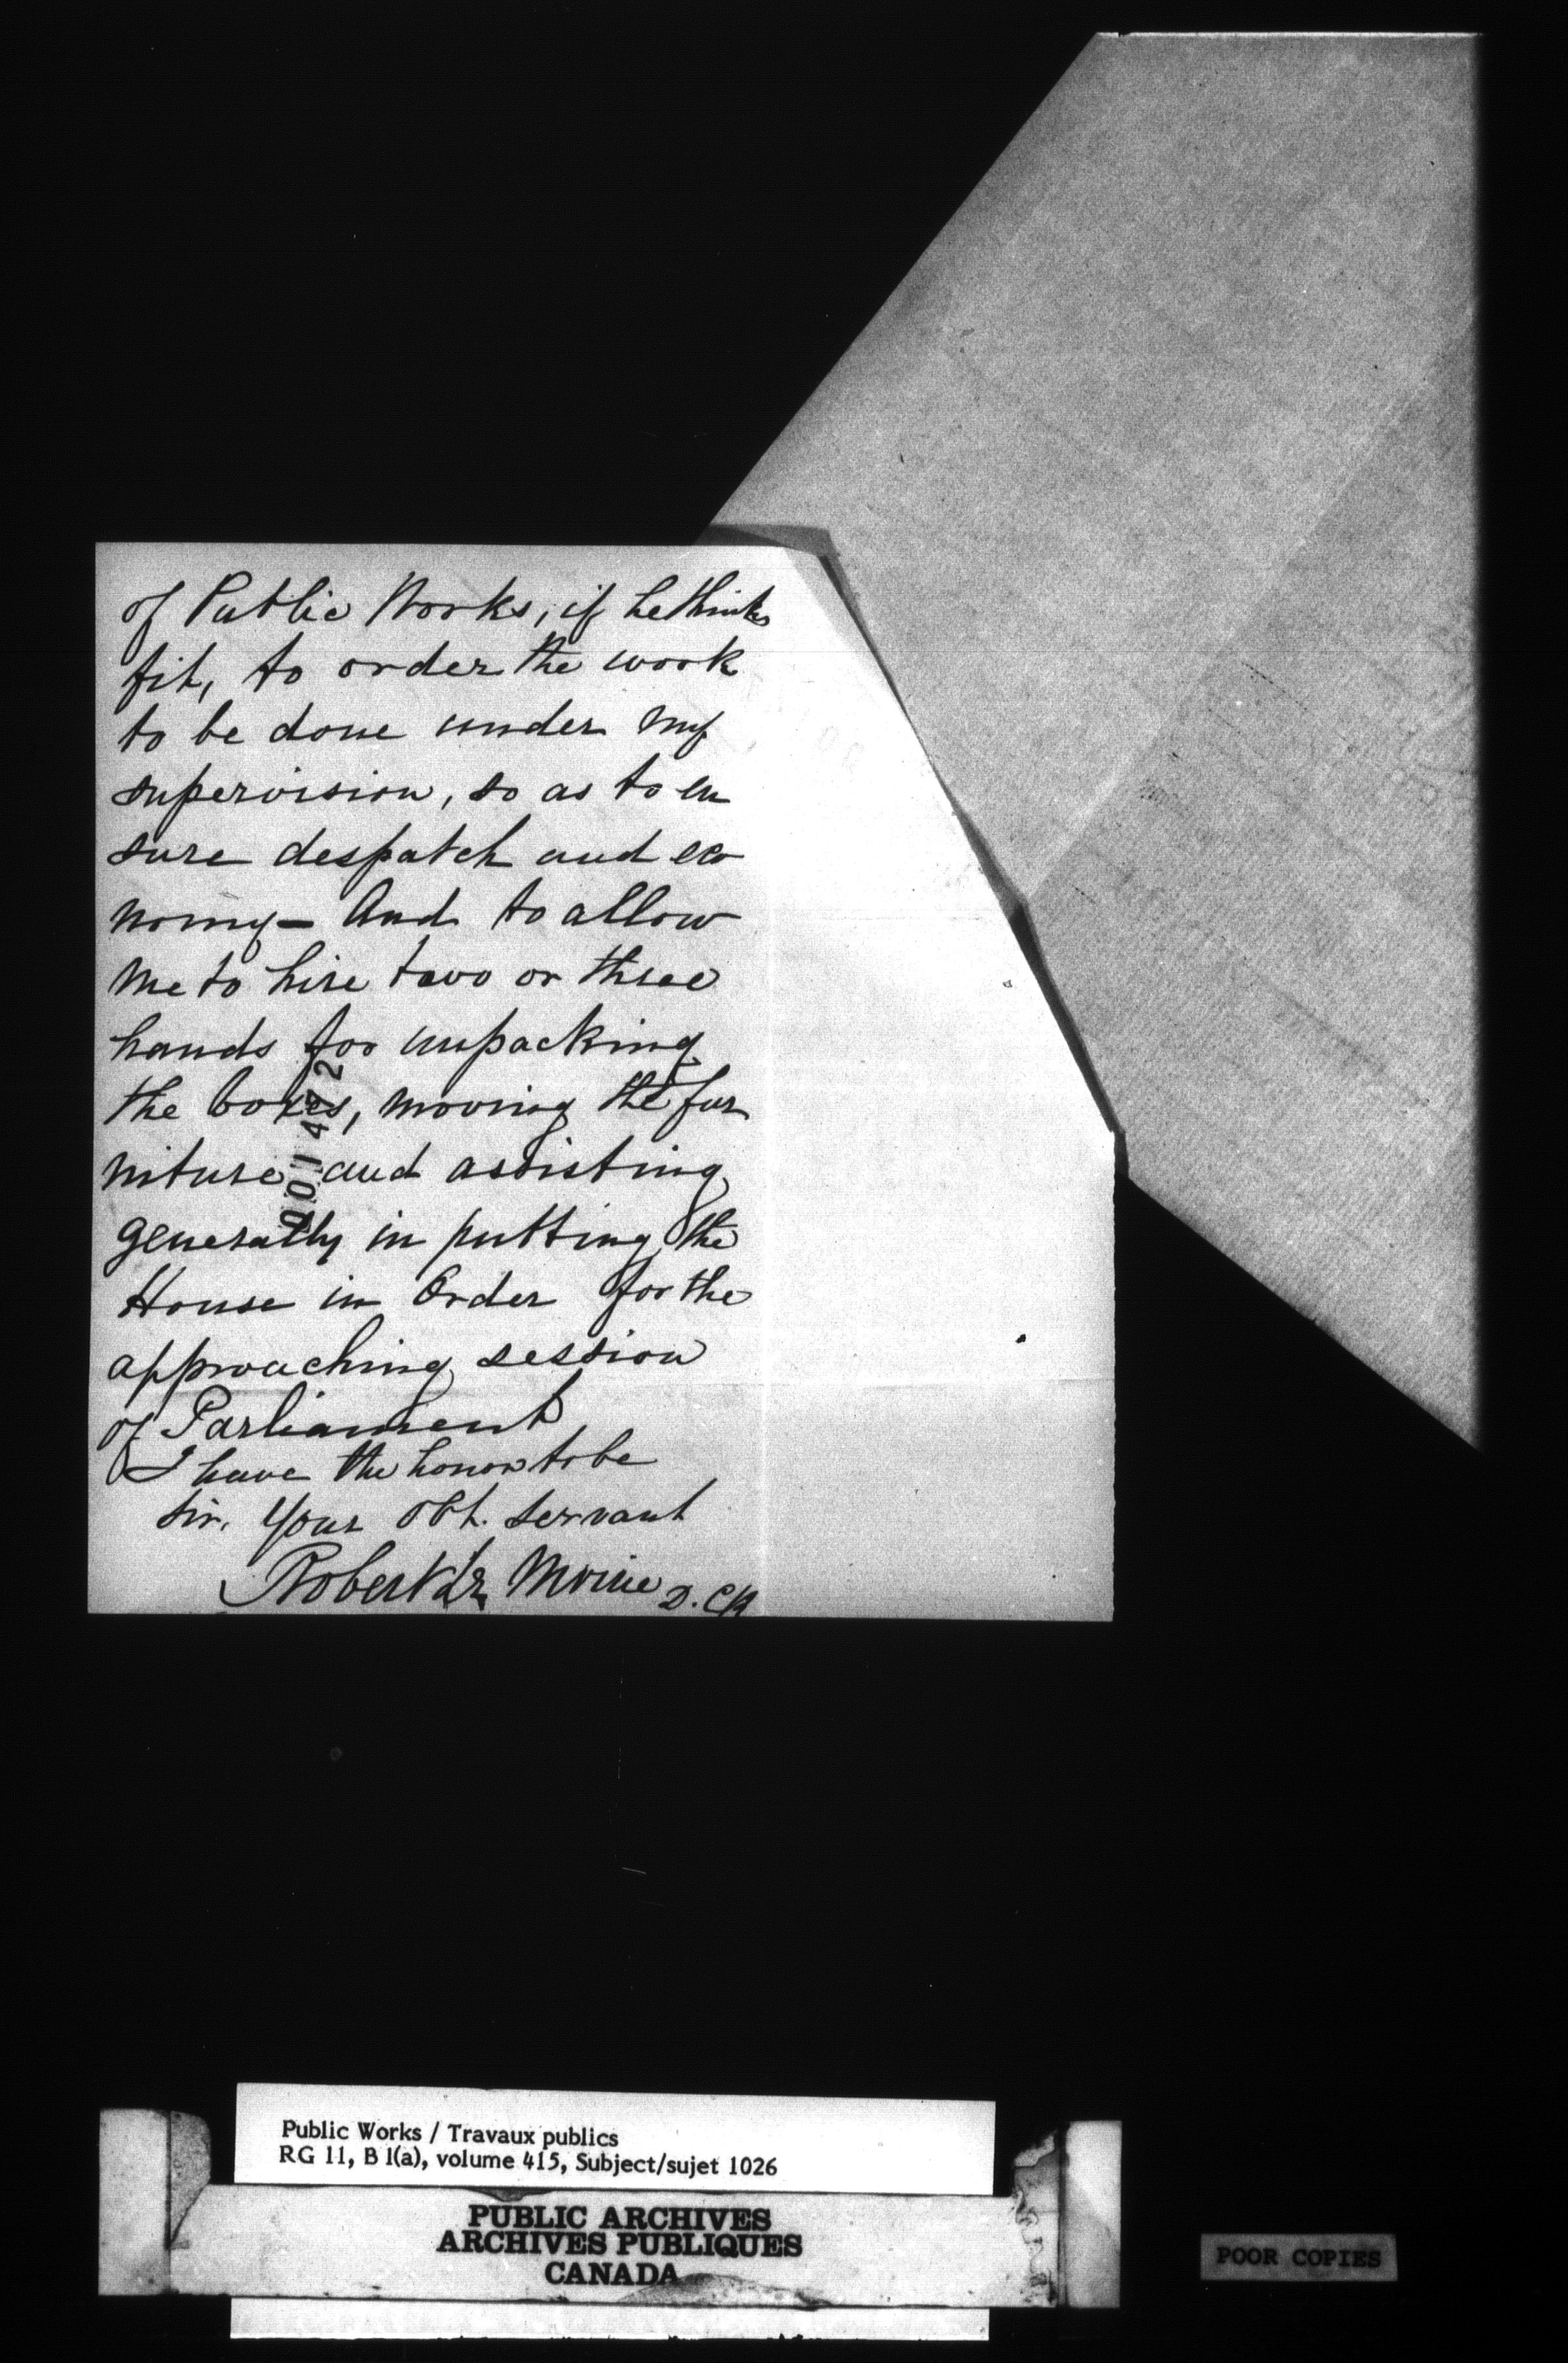 of Public Works, if he thinks
fit, to order the work
to be done under my
supervision, so as to en
sure despatch and eco
nomy — And to allow
me to hire two or three
hands for unpacking
the boxes, moving the fur
niture and assisting
generally in putting the
House in Order for the
approaching session
of Parliament
I have the honor to be
Sir, Your Obt. servant
Robert Le Moine D. Ck
Public Works / Travaux publics
RG 11, B 1(a), volume 415, Subject/sujet 1026
PUBLIC ARCHIVES
ARCHIVES PUBLIQUES
CANADA
POOR COPIES